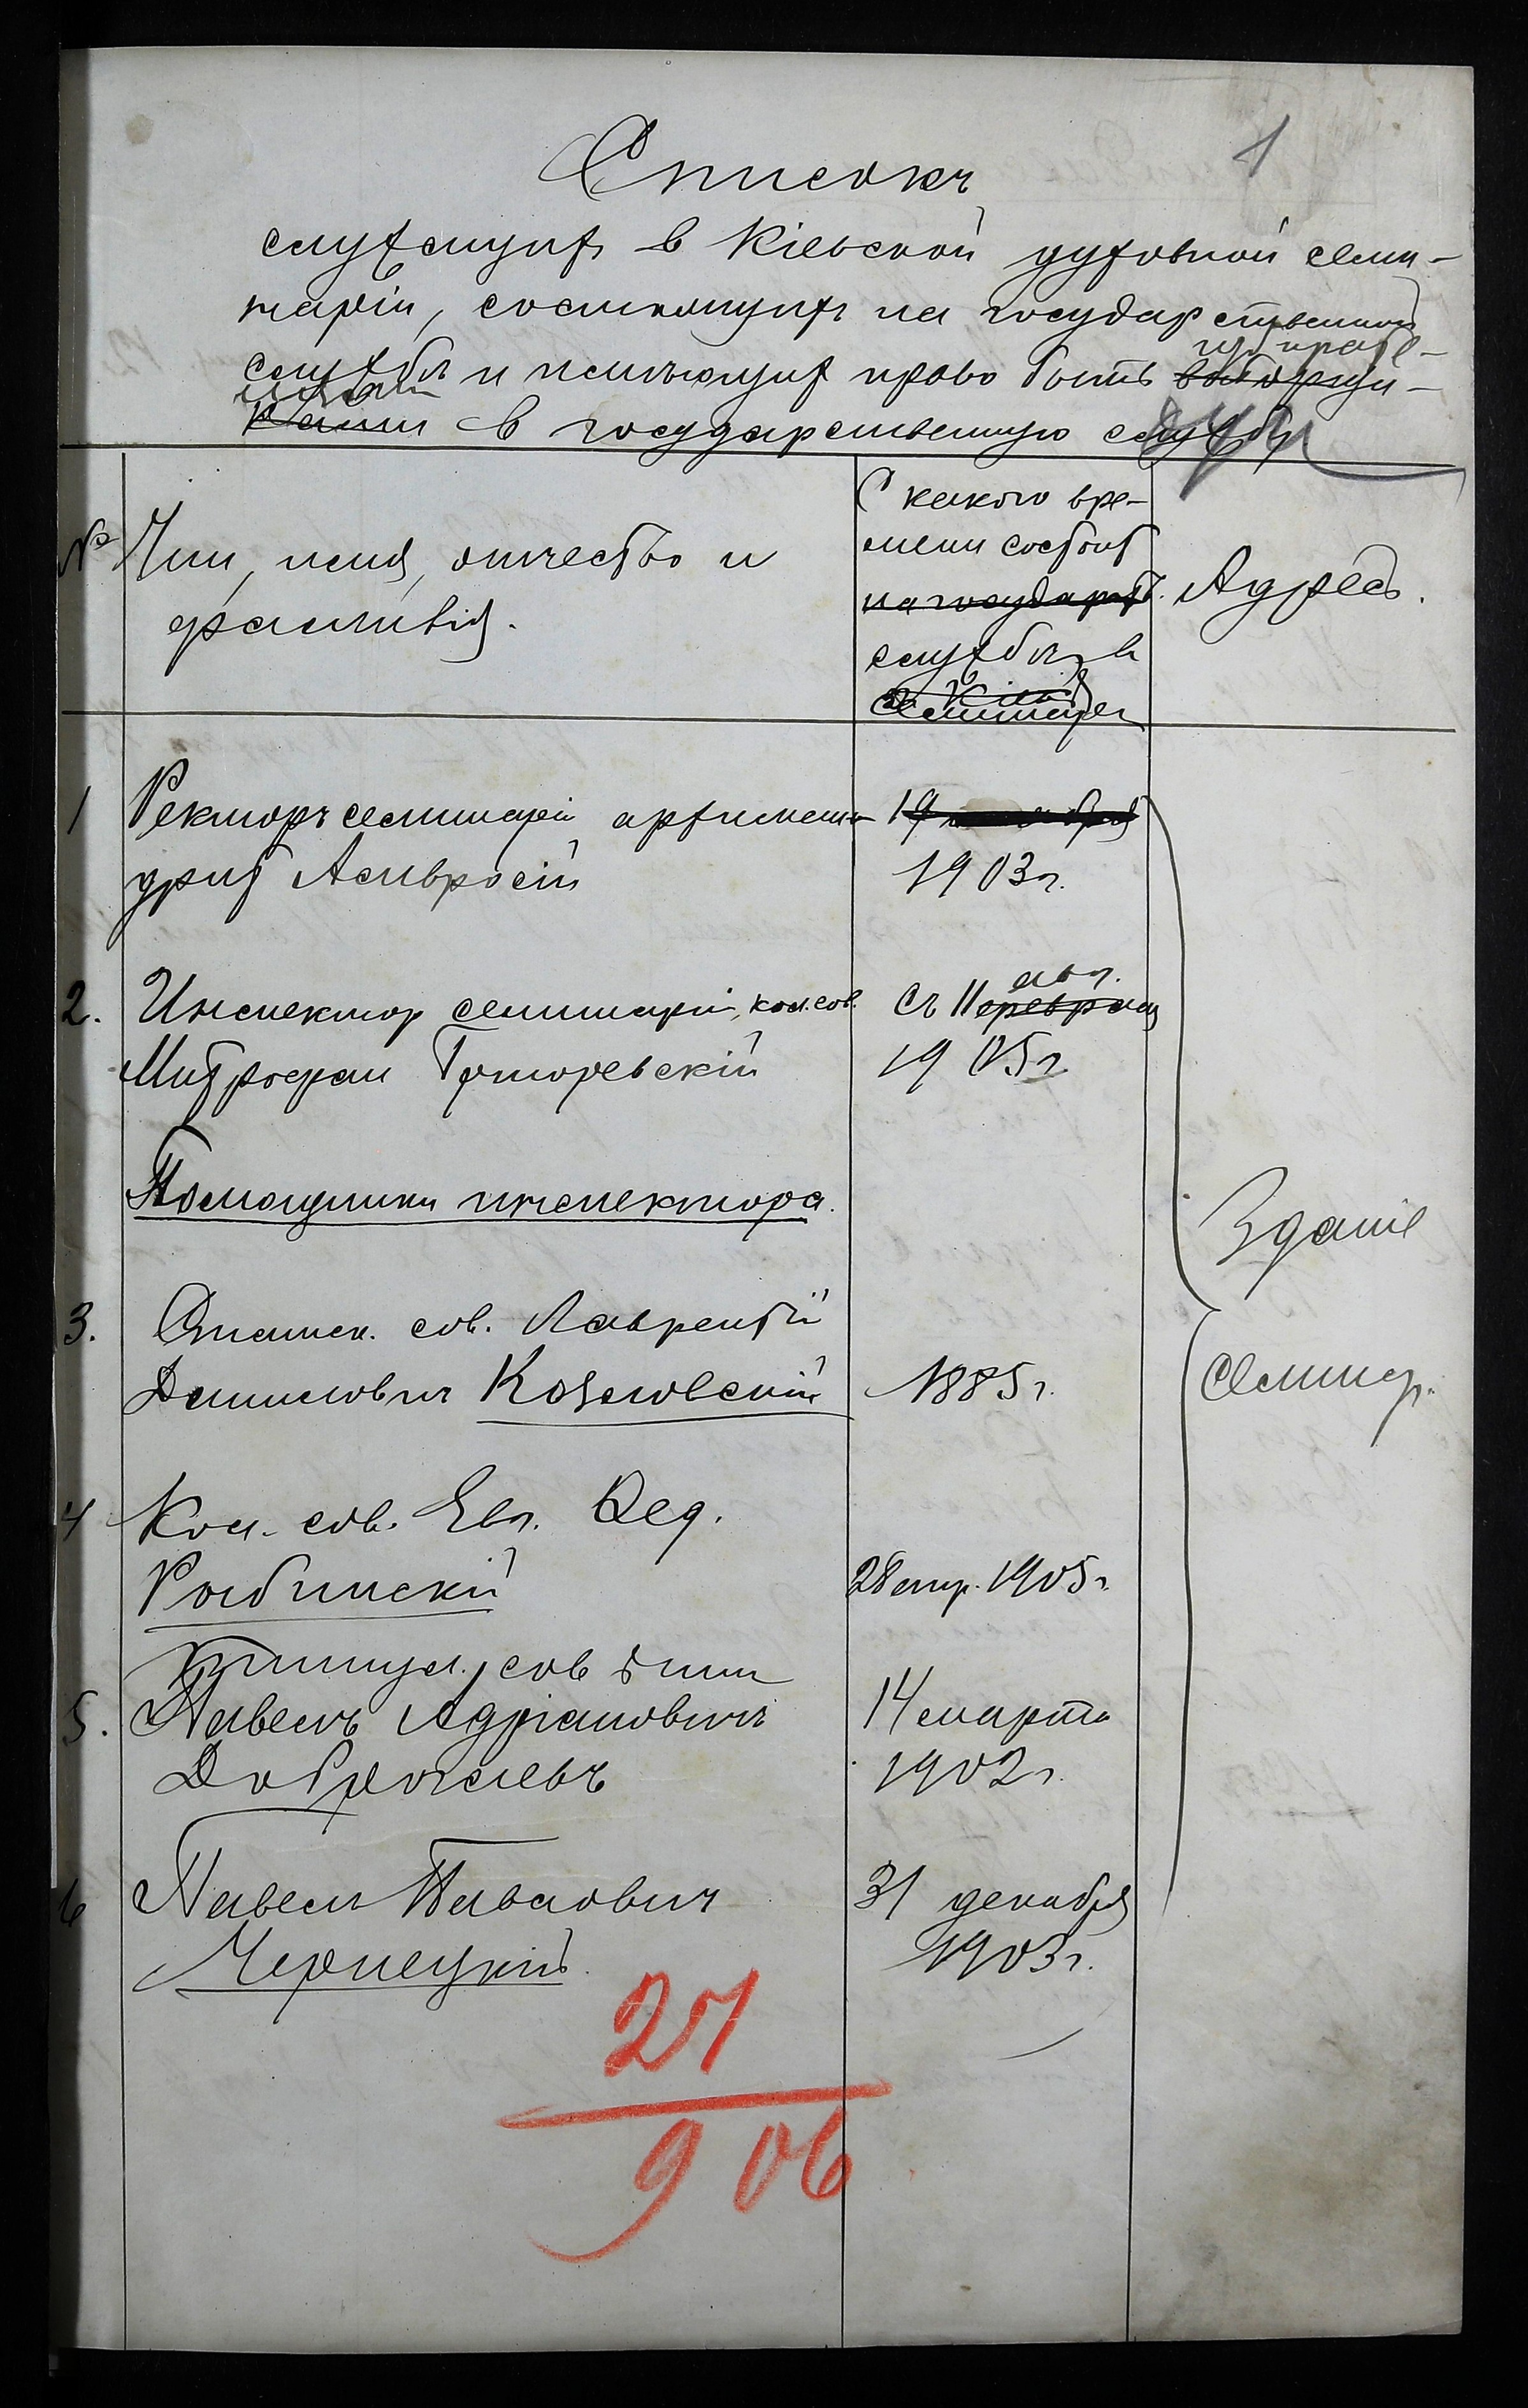 1
Списокъ
служащих в Кіевской духовной семи-
наріи, состоящих на государственной
избирате-
службѣ и имѣющих право быть выборщи-
лями
ками в государственную думу
№
Чин, имя, отчество и
фамилія.
С какого вре-
мени состоит
на государств.
службѣ в
семинаріи
Адресъ.
1
Ректоръ семинаріи архиман-
дрит Амвросій
19
1903 г.
2.
Инспектор семинаріи, кол. сов.
Митрофан
авг.
съ 11 февраля
1905 г.
Помощники инспектора.
3.
Статск. сов. Лаврентій
Даниилович Козловскій
1885 г.
Зданіе
Семинар.
4
Кол. сов. Евг. Фед.
Рыбинскій
28 апр. 1905 г.
Титул. сов
5.
Павелъ Адріановичъ
Доброгаевъ
14 марта
1902 г.
6
Павел Павлович
Чернецкій.
31 декабря
1903 г.
21
906